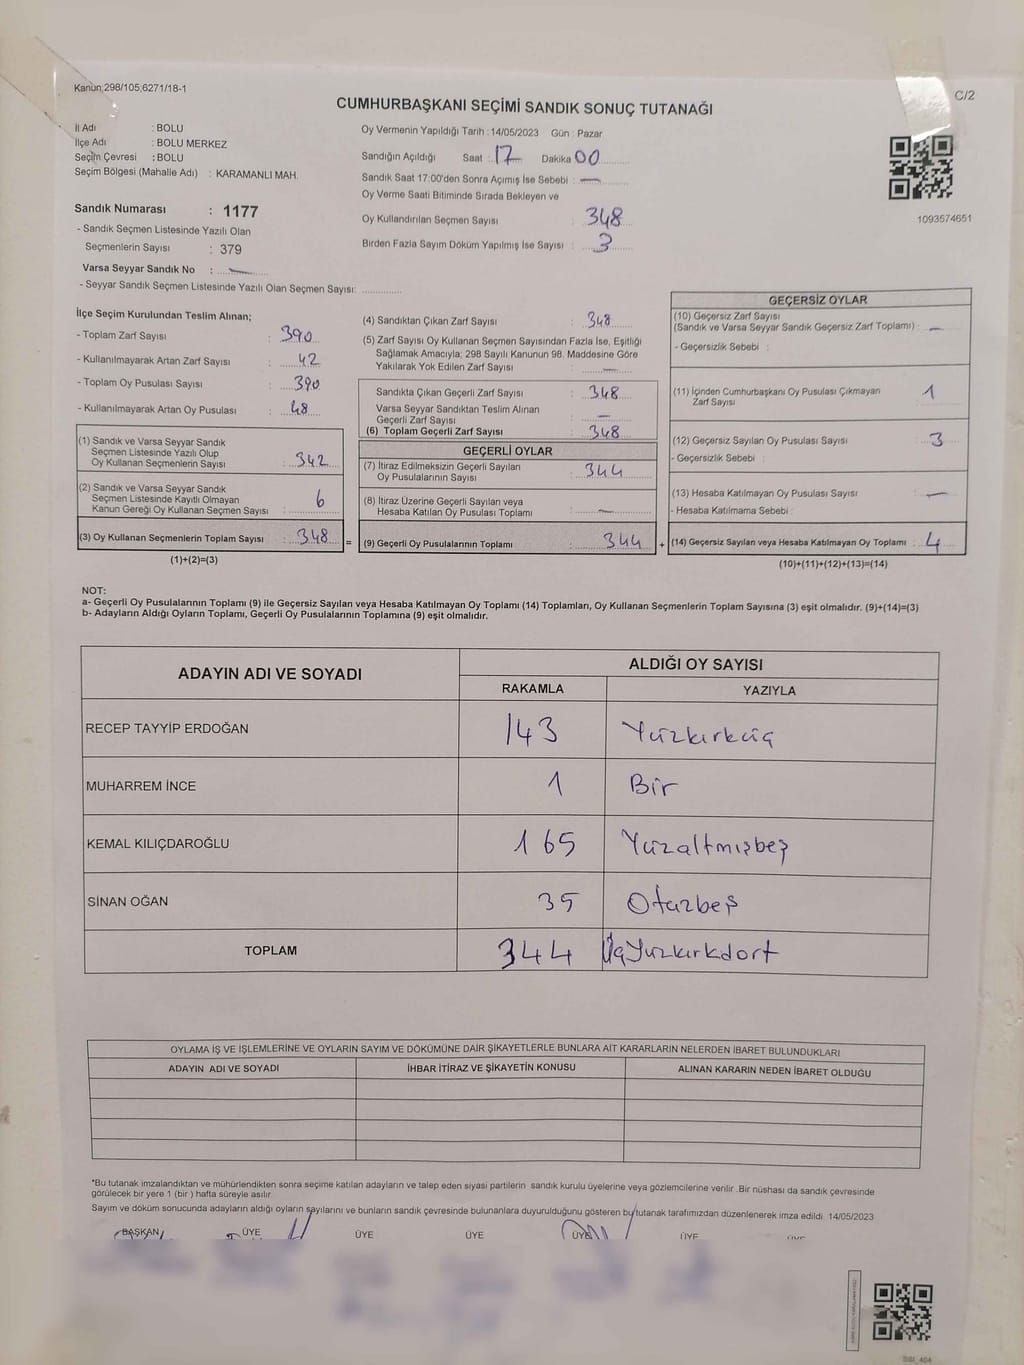 Kanun;298/105,6271/18-1
C/2
CUMHURBAŞKANI SEÇİMİ SANDIK SONUÇ TUTANAĞI
İl Adı : BOLU
İlçe Adı : BOLU MERKEZ
Seçim Çevresi : BOLU
Seçim Bölgesi (Mahalle Adı) : KARAMANLI MAH.
Sandık Numarası : 1177
- Sandık Seçmen Listesinde Yazılı Olan
Seçmenlerin Sayısı : 379
Varsa Seyyar Sandık No : —
- Seyyar Sandık Seçmen Listesinde Yazılı Olan Seçmen Sayısı:
Oy Vermenin Yapıldığı Tarih : 14/05/2023 Gün : Pazar
Sandığın Açıldığı Saat : 17 Dakika 00
Sandık Saat 17:00'den Sonra Açımış İse Sebebi : —
Oy Verme Saati Bitiminde Sırada Bekleyen ve
Oy Kullandırılan Seçmen Sayısı : 348
Birden Fazla Sayım Döküm Yapılmış İse Sayısı : 3
1093574651
İlçe Seçim Kurulundan Teslim Alınan;
- Toplam Zarf Sayısı : 390
- Kullanılmayarak Artan Zarf Sayısı : 42
- Toplam Oy Pusulası Sayısı : 390
- Kullanılmayarak Artan Oy Pusulası : 48
(1) Sandık ve Varsa Seyyar Sandık
Seçmen Listesinde Yazılı Olup
Oy Kullanan Seçmenlerin Sayısı : 342
(2) Sandık ve Varsa Seyyar Sandık
Seçmen Listesinde Kayıtlı Olmayan
Kanun Gereği Oy Kullanan Seçmen Sayısı : 6
(3) Oy Kullanan Seçmenlerin Toplam Sayısı : 348 =
(1)+(2)=(3)
(4) Sandıktan Çıkan Zarf Sayısı : 348
(5) Zarf Sayısı Oy Kullanan Seçmen Sayısından Fazla İse, Eşitliği
Sağlamak Amacıyla; 298 Sayılı Kanunun 98. Maddesine Göre
Yakılarak Yok Edilen Zarf Sayısı : —
Sandıkta Çıkan Geçerli Zarf Sayısı : 348
Varsa Seyyar Sandıktan Teslim Alınan
Geçerli Zarf Sayısı : —
(6) Toplam Geçerli Zarf Sayısı : 348
GEÇERLİ OYLAR
(7) İtiraz Edilmeksizin Geçerli Sayılan
Oy Pusulasının Sayısı : 344
(8) İtiraz Üzerine Geçerli Sayılan veya
Hesaba Katılan Oy Pusulası Toplamı : —
(9) Geçerli Oy Pusulalarının Toplamı : 344 +
GEÇERSİZ OYLAR
(10) Geçersiz Zarf Sayısı
(Sandık ve Varsa Seyyar Sandık Geçersiz Zarf Toplamı) : —
- Geçersizlik Sebebi :
(11) İçinden Cumhurbaşkanı Oy Pusulası Çıkmayan
Zarf Sayısı : 1
(12) Geçersiz Sayılan Oy Pusulası Sayısı : 3
- Geçersizlik Sebebi :
(13) Hesaba Katılmayan Oy Pusulası Sayısı : —
- Hesaba Katılmama Sebebi :
(14) Geçersiz Sayılan veya Hesaba Katılmayan Oy Toplamı : 4
(10)+(11)+(12)+(13)=(14)
NOT:
a- Geçerli Oy Pusulalarının Toplamı (9) ile Geçersiz Sayılan veya Hesaba Katılmayan Oy Toplamı (14) Toplamları, Oy Kullanan Seçmenlerin Toplam Sayısına (3) eşit olmalıdır. (9)+(14)=(3)
b- Adayların Aldığı Oyların Toplamı, Geçerli Oy Pusulalarının Toplamına (9) eşit olmalıdır.
ADAYIN ADI VE SOYADI ALDIĞI OY SAYISI
RAKAMLA YAZIYLA
RECEP TAYYİP ERDOĞAN 143 Yüzkırküç
MUHARREM İNCE 1 Bir
KEMAL KILIÇDAROĞLU 165 Yüzaltmışbeş
SİNAN OĞAN 35 Otuzbeş
TOPLAM 344 ÜçYüzkırkdört
OYLAMA İŞ VE İŞLEMLERİNE VE OYLARIN SAYIM VE DÖKÜMÜNE DAİR ŞİKAYETLERLE BUNLARA AİT KARARLARIN NELERDEN İBARET BULUNDUKLARI
ADAYIN ADI VE SOYADI İHBAR İTİRAZ VE ŞİKAYETİN KONUSU ALINAN KARARIN NEDEN İBARET OLDUĞU
*Bu tutanak imzalandıktan ve mühürlendikten sonra seçime katılan adayların ve talep eden siyasi partilerin sandık kurulu üyelerine veya gözlemcilerine verilir .Bir nüshası da sandık çevresinde
görülecek bir yere 1 (bir ) hafta süreyle asılır.
Sayım ve döküm sonucunda adayların aldığı oyların sayılarını ve bunların sandık çevresinde bulunanlara duyurulduğunu gösteren bu tutanak tarafımızdan düzenlenerek imza edildi. 14/05/2023
BAŞKAN ÜYE ÜYE ÜYE ÜYE ÜYE ÜYE